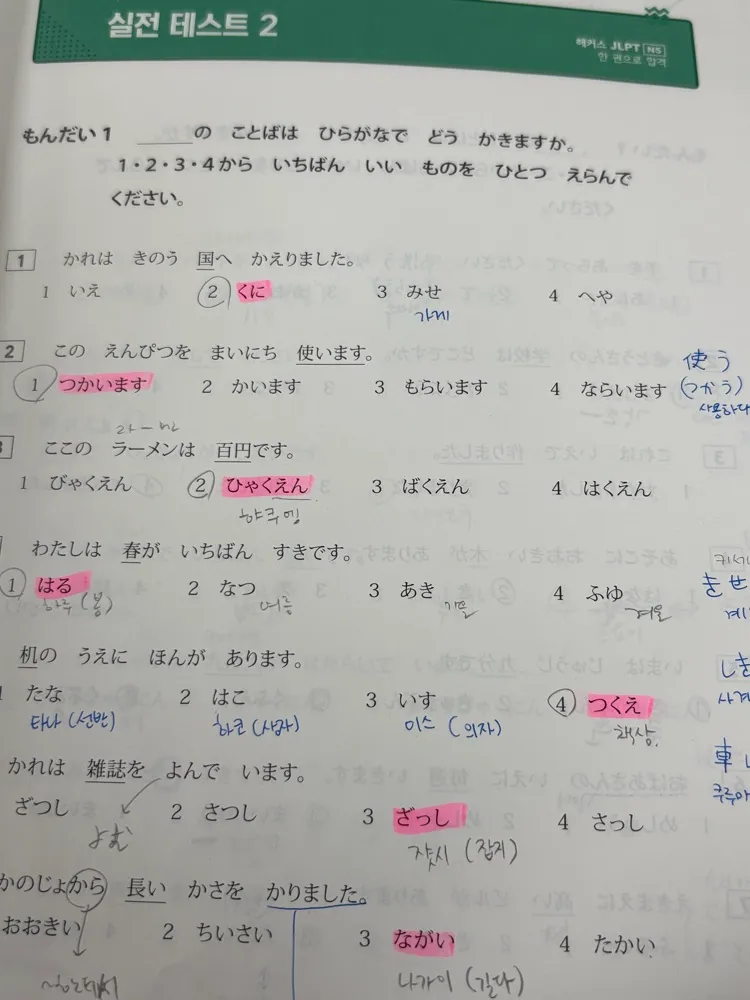 실전 테스트 2
해커스 JLPT N5
한 권으로 합격
もんだい1 ______の ことばは ひらがなで どう かきますか。
1・2・3・4から いちばん いい ものを ひとつ えらんで
ください。
1 かれは きのう 国へ かえりました。
1 いえ 2 くに 3 みせ 4 へや
가게
2 この えんぴつを まいにち 使います。
使う
1 つかいます 2 かいます 3 もらいます 4 ならいます
(つかう)
사용하다
ラーメン
3 ここの ラーメンは 百円です。
1 びゃくえん 2 ひゃくえん 3 ばくえん 4 はくえん
햐쿠엥
わたしは 春が いちばん すきです。
1 はる 2 なつ 3 あき 4 ふゆ
하루 (봄) 여름 가을 겨울
机の うえに ほんが あります。
たな 2 はこ 3 いす 4 つくえ
타나 (선반) 하코 (상자) 이스 (의자) 책상.
かれは 雑誌を よんで います。
ざつし 2 さつし 3 ざっし 4 さっし
よむ 쟛시 (잡지)
かのじょから 長い かさを かりました。
おおきい 2 ちいさい 3 ながい 4 たかい
나가이 (길다)